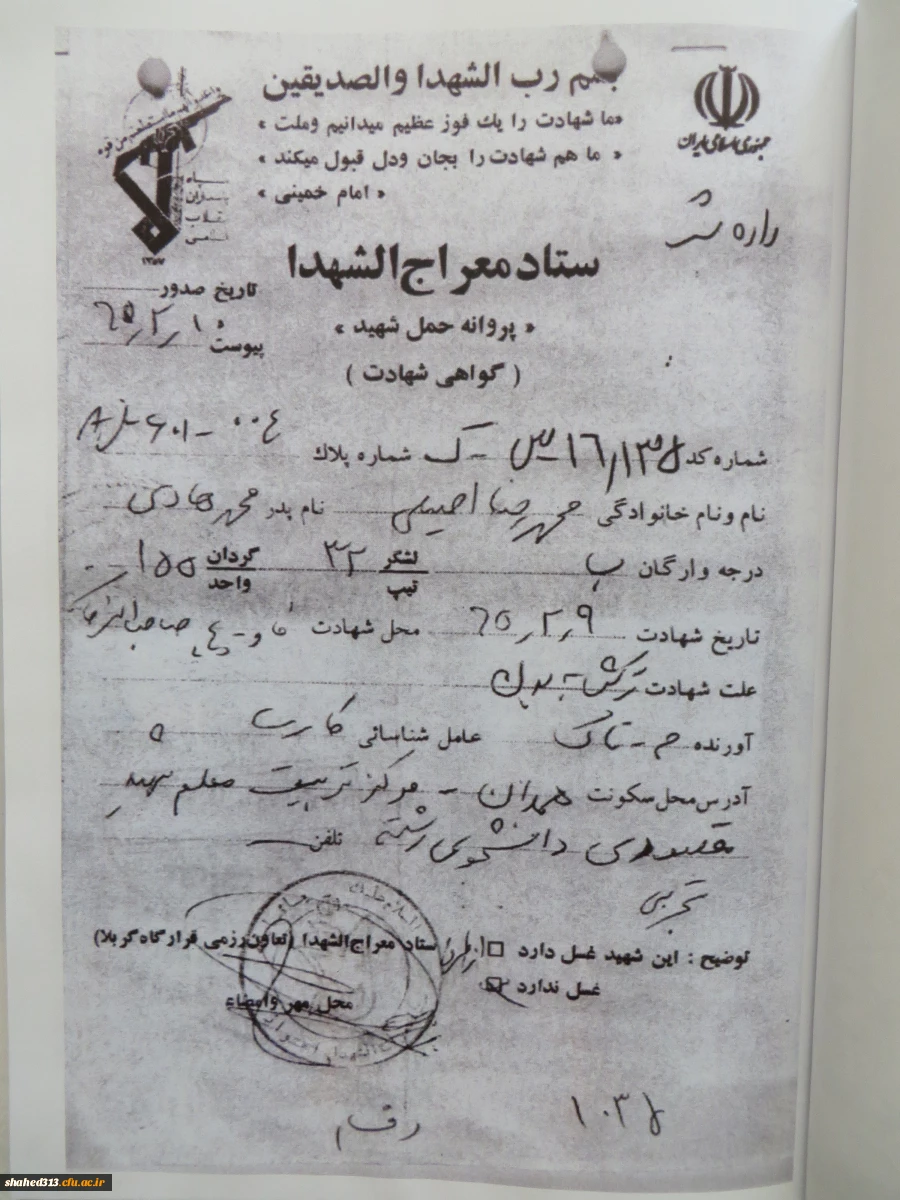 بسم رب الشهدا والصدیقین
«ما شهادت را یك فوز عظیم میدانیم وملت»
« ما هم شهادت را بجان ودل قبول میکند »
« امام خمینی »
جمهوری اسلامی ایران
ستاد معراج الشهدا
تاریخ صدور
« پروانه حمل شهید »
۶۵/۲/۱۰
پیوست
( گواهی شهادت )
شماره کد شماره پلاك
نام ونام خانوادگی محمدرضا نام پدر محمد هادی
درجه وارگان ب لشگر تیپ ۳۲ گردان واحد ۱۵۵
تاریخ شهادت ۶۵/۲/۹ محل شهادت فاو
علت شهادت ترکش
آورنده عامل شناسائی کارت
آدرس محل سکونت همدان - مرکز تربیت معلم شهید
مقصودی دانشجوی رشته تلفن
تجربی
توضیح : این شهید غسل دارد
غسل ندارد
ستاد معراج الشهدا (تعاون رزمی قرارگاه کربلا)
محل مهر وامضاء
shahed313.cfu.ac.ir